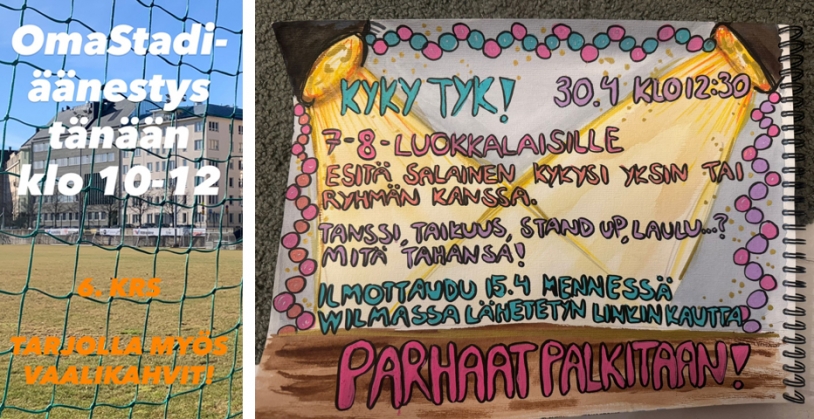 OmaStadi-
äänestys
tänään
klo 10-12
6. KRS
TARJOLLA MYÖS
VAALIKAHVIT!
KYKY TYK!
30.4 KLO 12:30
7-8-LUOKKALAISILLE
ESITÄ SALAINEN KYKYSI YKSIN TAI
RYHMÄN KANSSA.
TANSSI, TAIKUUS, STAND UP, LAULU...?
MITÄ TAHANSA!
ILMOTTAUDU 15.4 MENNESSÄ
WILMASSA LÄHETETYN LINKIN KAUTTA
PARHAAT PALKITAAN!